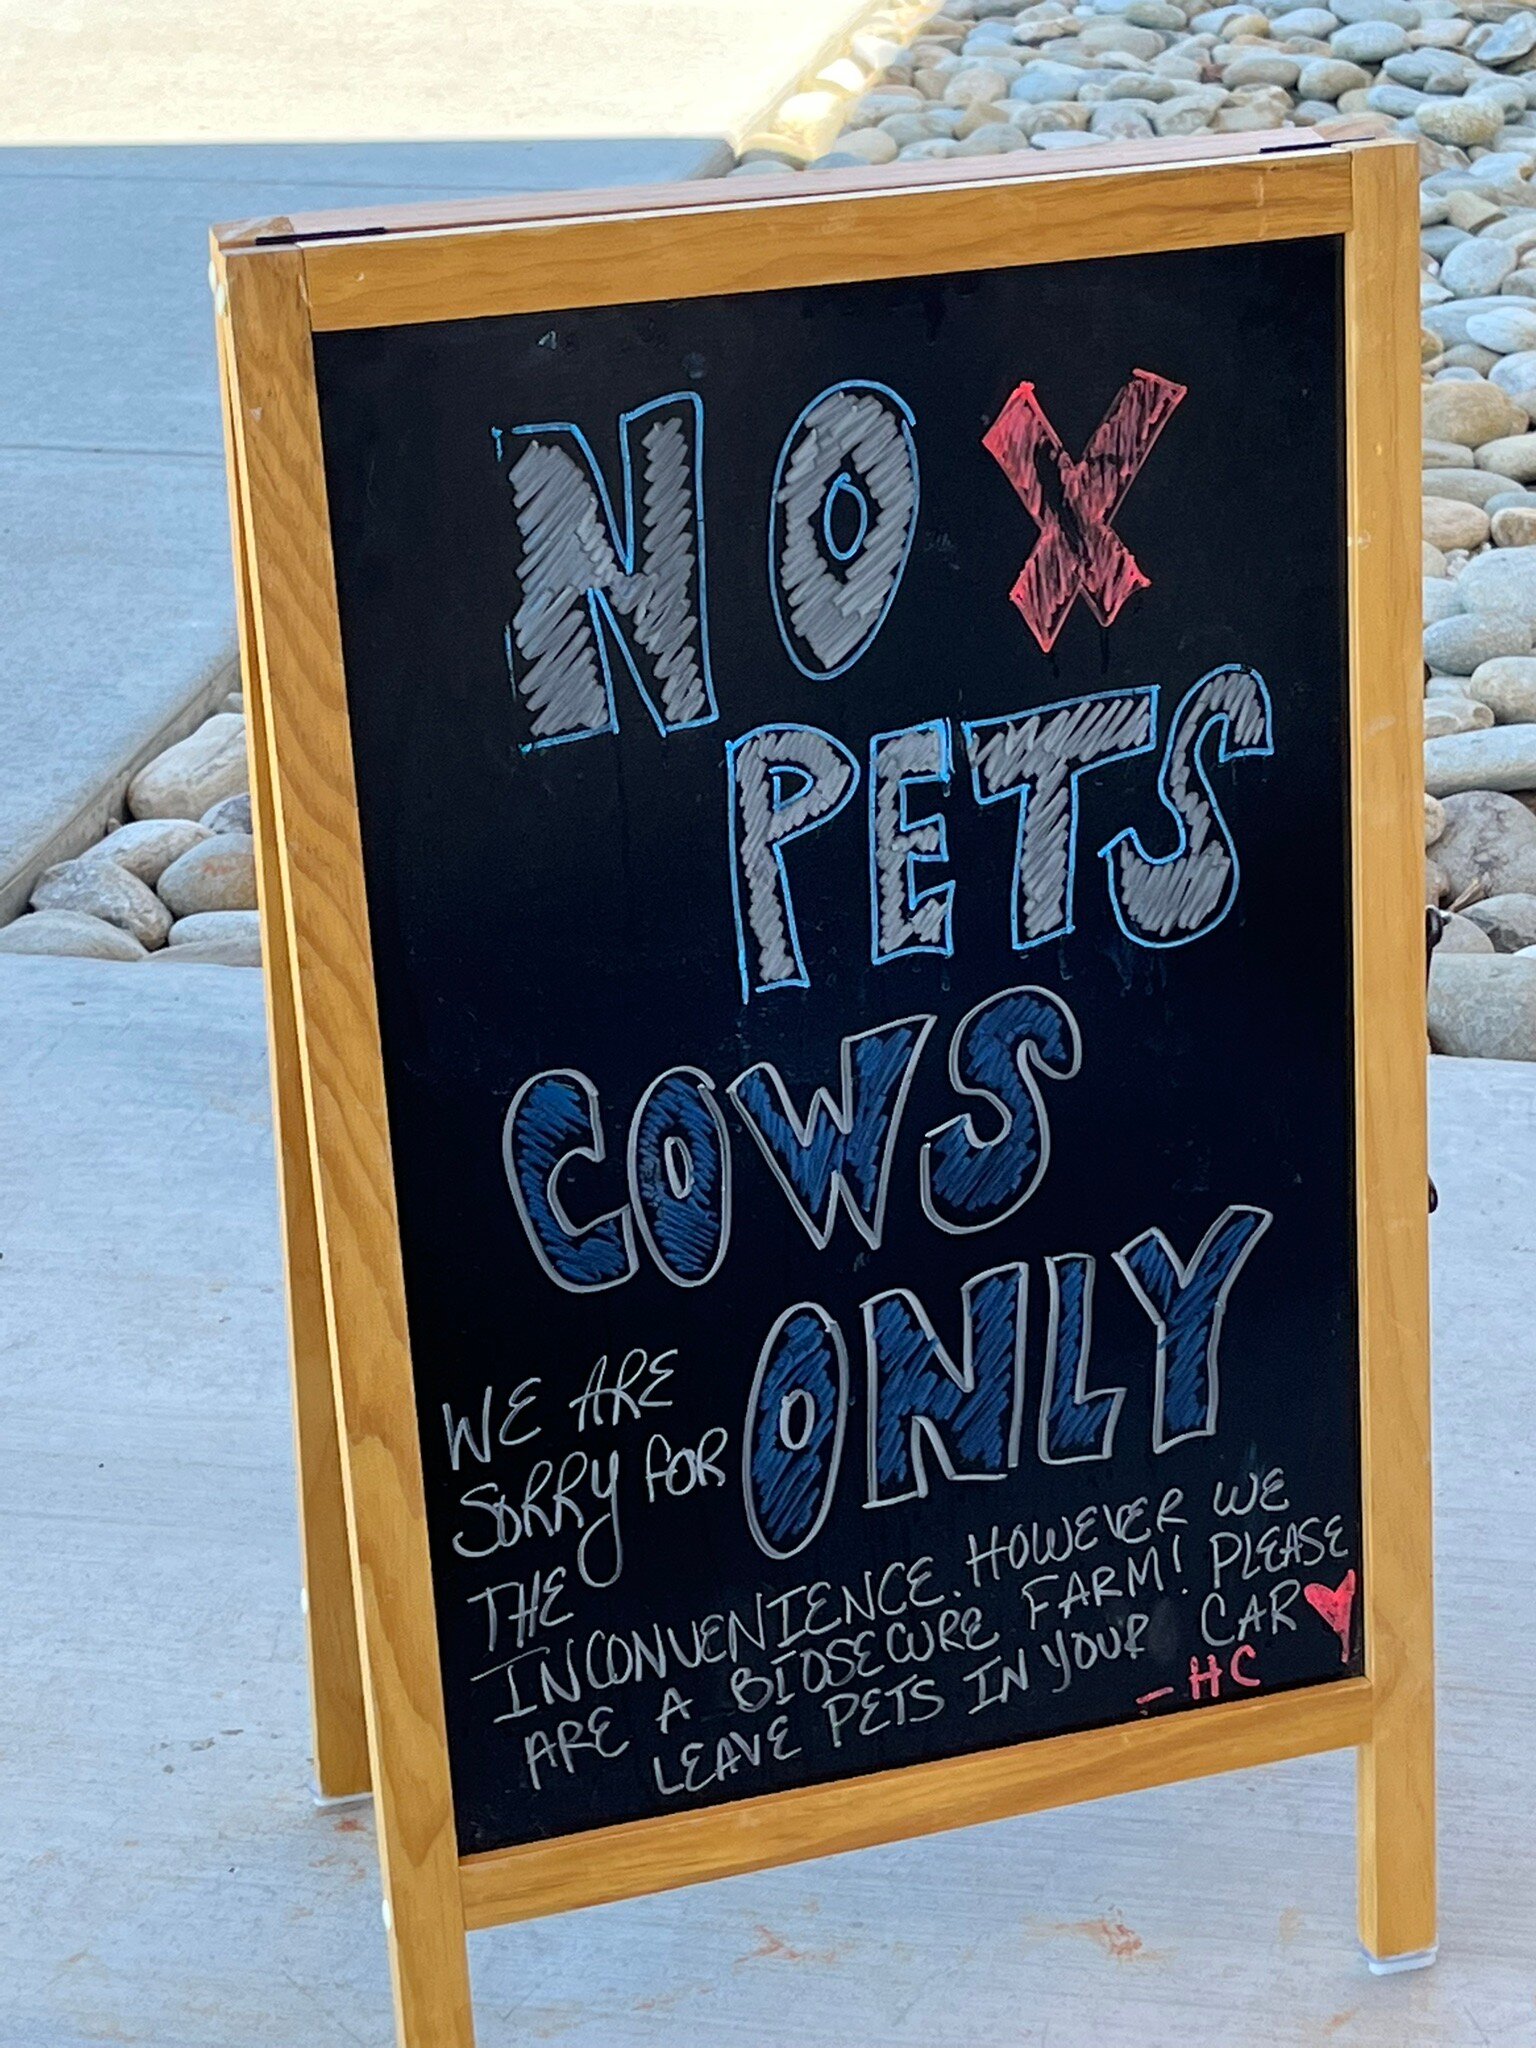 NO X
PETS
COWS
ONLY
WE ARE
SORRY FOR
THE
INCONVENIENCE. HOWEVER WE
ARE A BIOSECURE FARM! PLEASE
LEAVE PETS IN YOUR CAR ♥
- HC